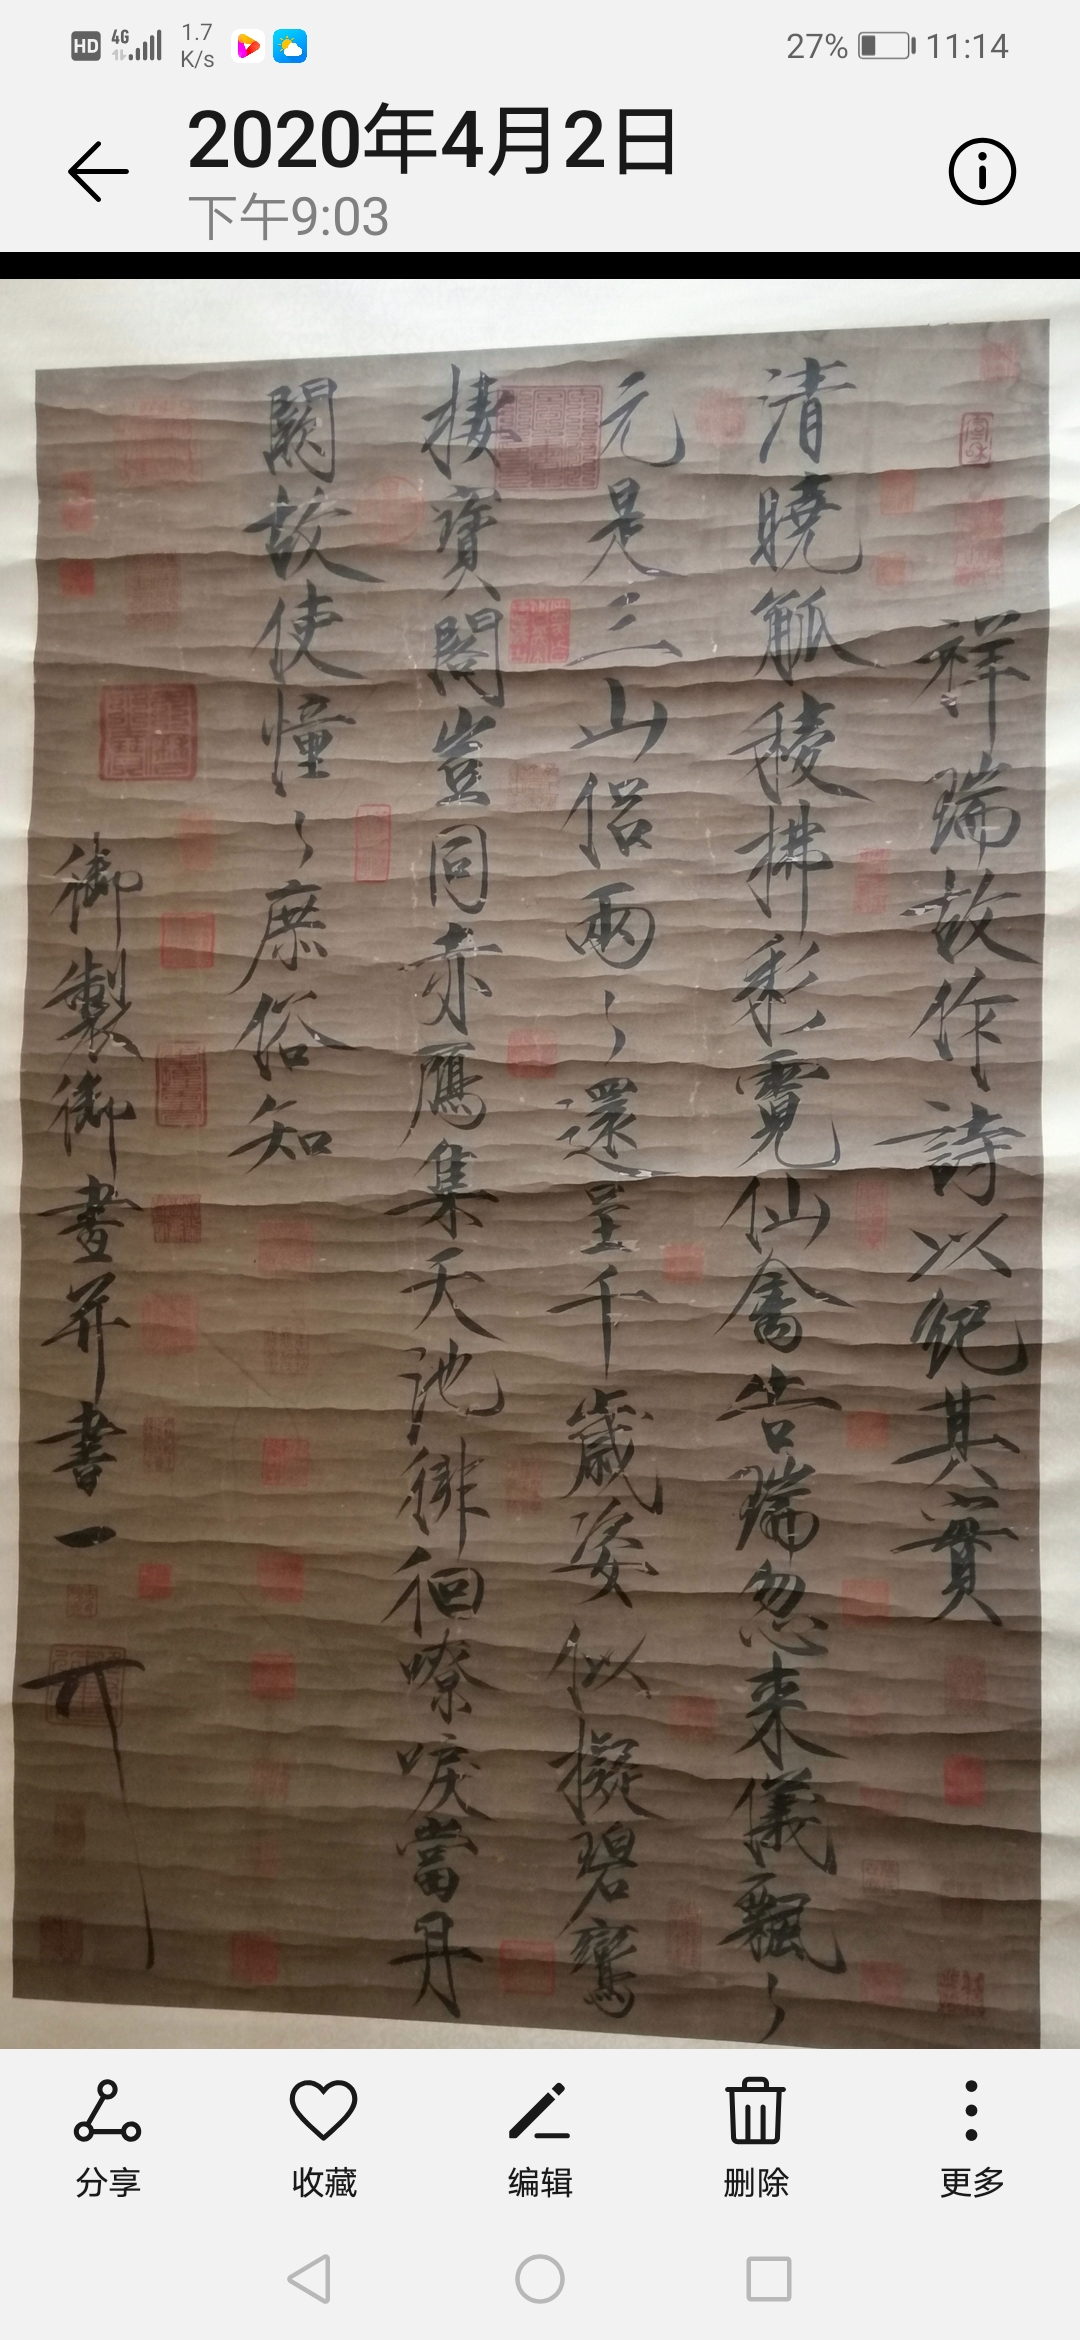 HD 4G 1.7 K/s 27% 11:14
2020年4月2日
下午9:03
祥瑞故作詩以紀其實
清曉觚稜拂彩霓仙禽告瑞忽来儀飄〻
元是三山侣兩〻還呈千歲姿似擬碧鸞
棲寶閣豈同赤鴈集天池徘徊嘹唳當丹
闕故使憧〻庶俗知
御製御畫并書一
分享
收藏
编辑
删除
更多